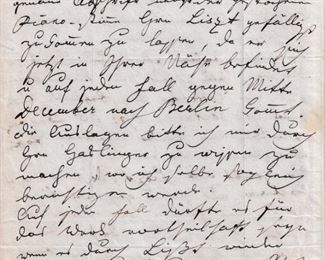 genaue Abschrift
Piano-, Hrn Liszt gefällig
zukommen zu lassen, da er sich
jetzt in Ihrer Nähe befindet
u auf jeden Fall gegen Mitte
December nach Berlin kommt
die Auslagen bitte ich mir durch
Hrn Haslinger zu wissen zu
machen, wo ich selbe sogleich
berichtigen werde.
Auf jeden Fall dürfte es für
das Werk vortheilhaft seyn
wenn es durch Lißt wieder